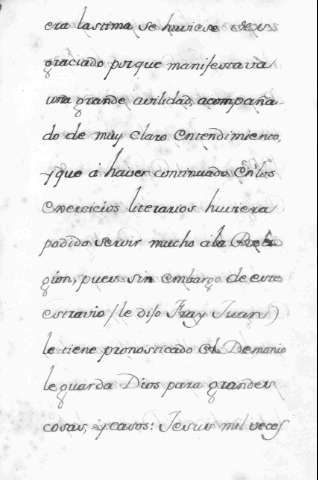 era lastima se huviese des
graciado porque manifestava
una grande avilidad, acompaña-
do de muy claro entendimiento,
y que á haver continuado en los
exercicios literarios huviera
podido servir mucho a la Reli
gion, pues sin embargo de este
estravio / le dijo Fray Juan)
le tiene pronosticado el Demonio
le guarda Dios para grandes
cosas, y casos: Jesus mil veces